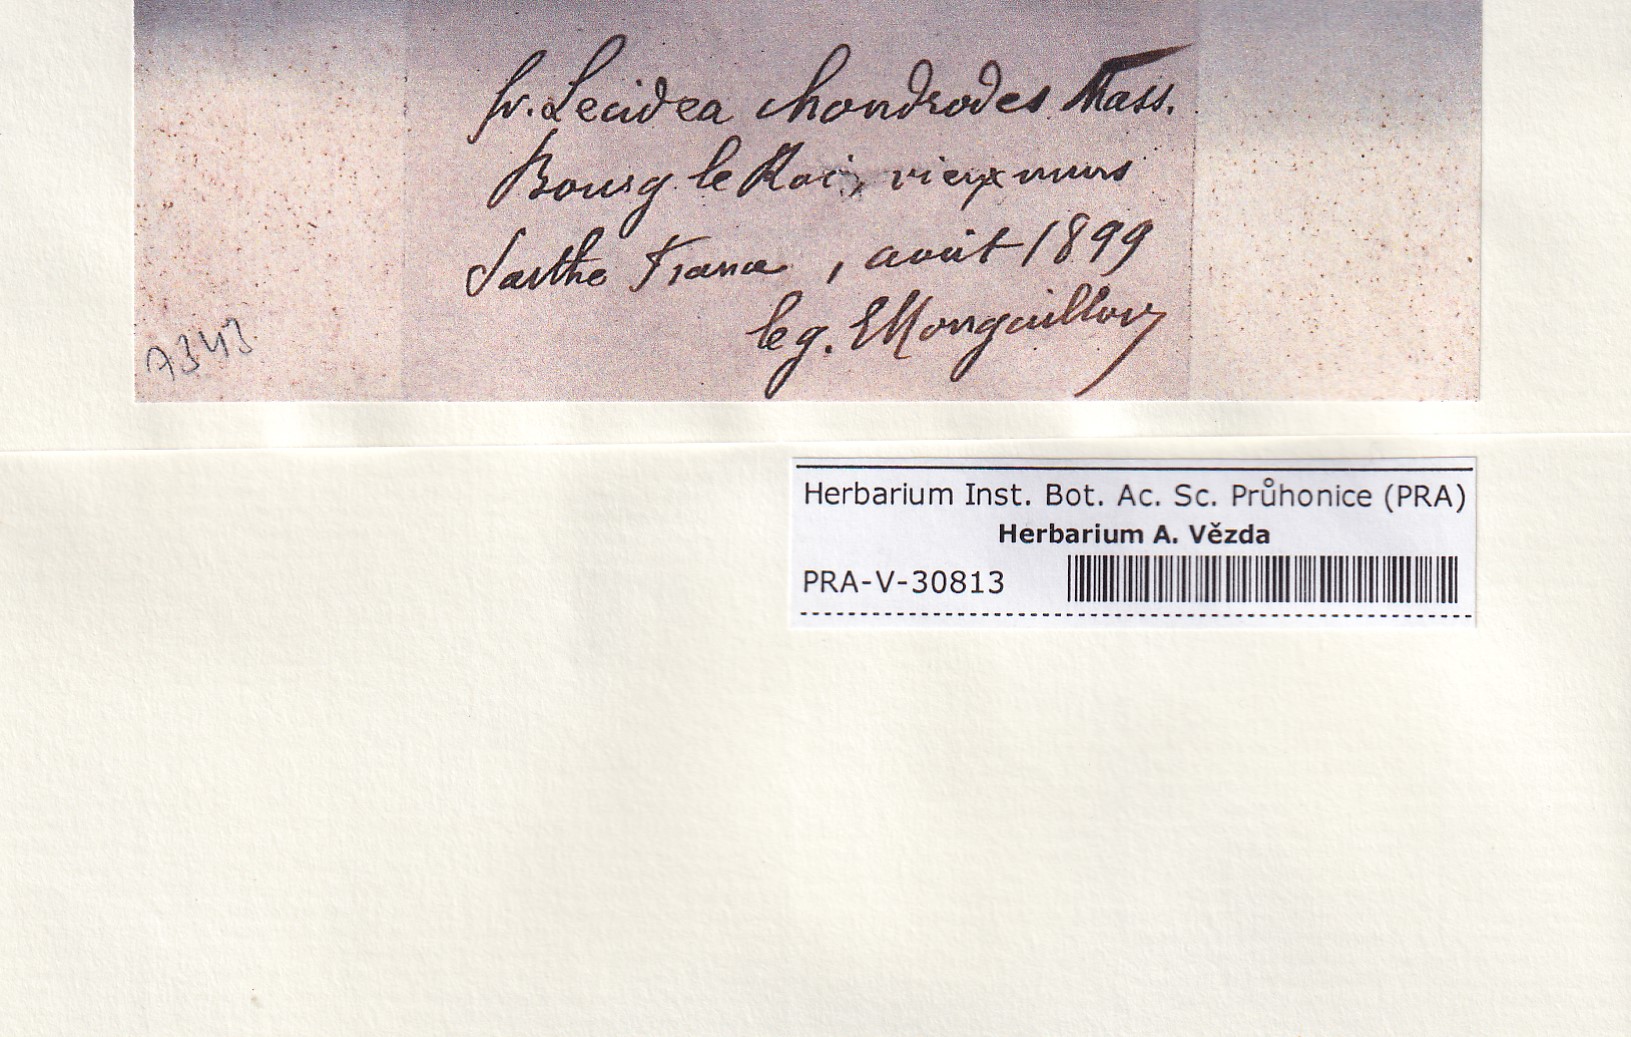 fr. Lecidea chondrodes Mass.
Bourg le Roi, vieux murs
Sarthe France, août 1899
leg. E Monguillon
7343
Herbarium Inst. Bot. Ac. Sc. Průhonice (PRA)
Herbarium A. Vězda
PRA-V-30813